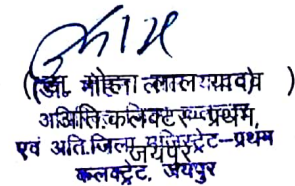 (डा. मोहन लाल यादव)
अति.कलक्टर--प्रथम,
एवं अति.जिला मजिस्ट्रेट--प्रथम
जयपुर
कलक्ट्रेट, जयपुर